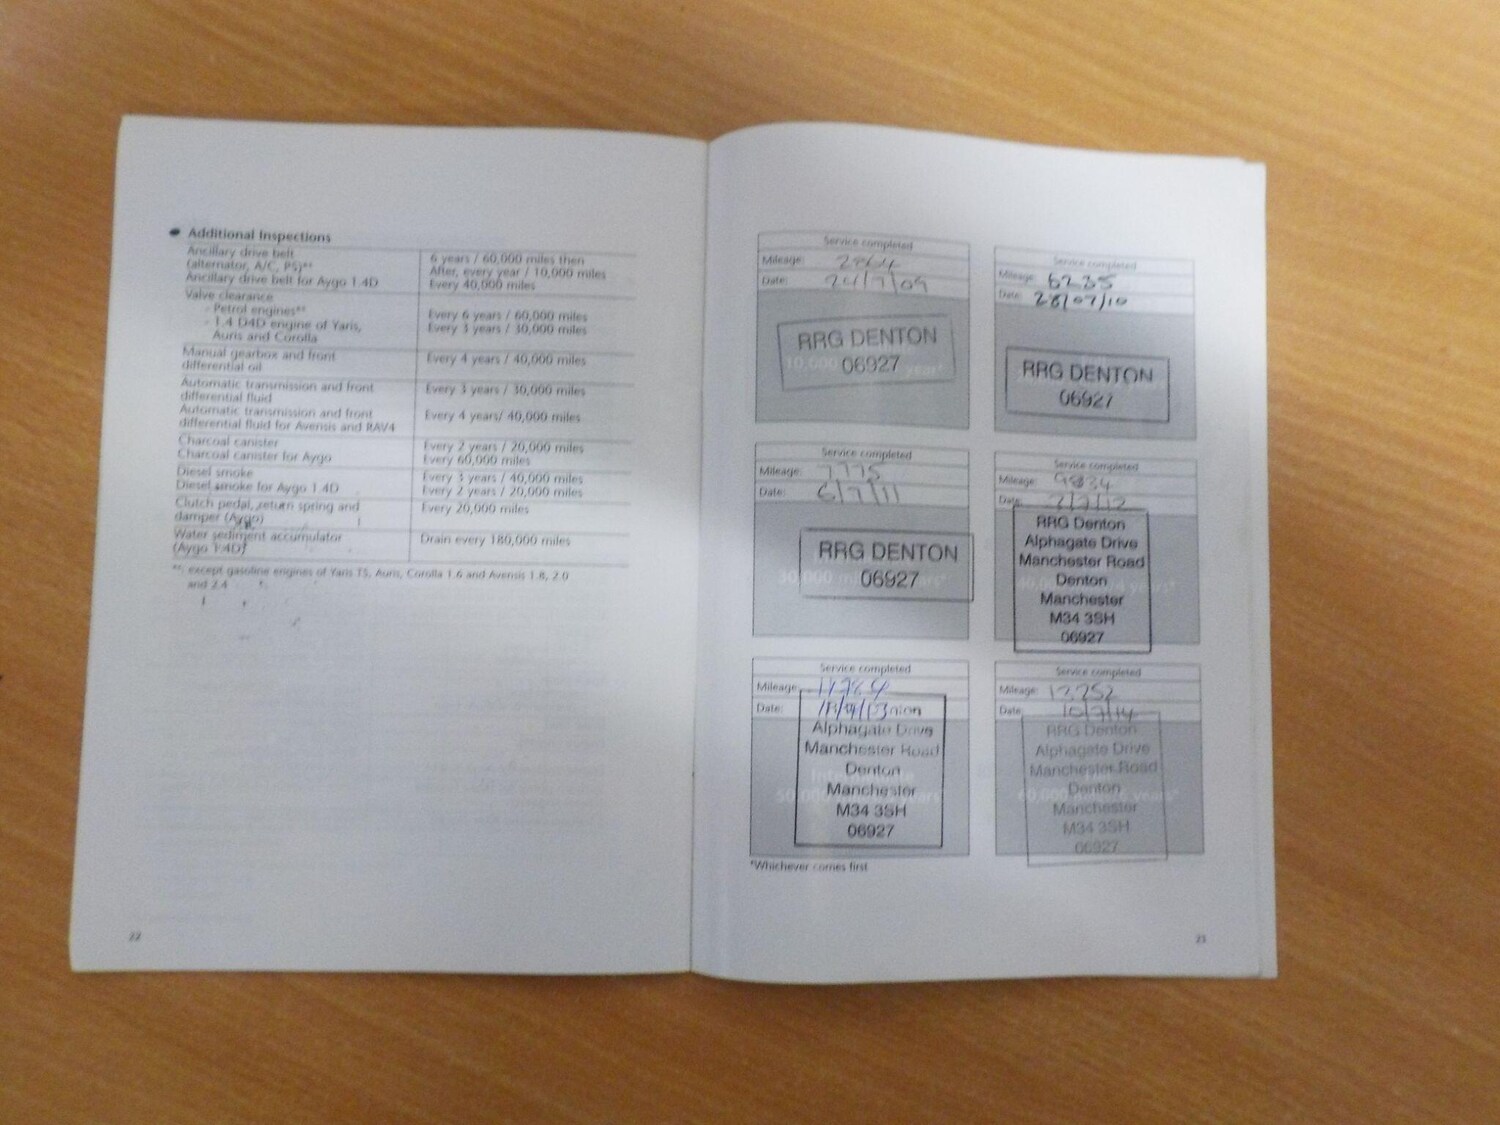 Additional Inspections
Ancillary drive belt
(alternator, A/C, PS)**
6 years / 60,000 miles then
After, every year / 10,000 miles
Ancillary drive belt for Aygo 1.4D
Every 40,000 miles
Valve clearance
- Petrol engines**
Every 6 years / 60,000 miles
- 1.4 D4D engine of Yaris,
Auris and Corolla
Every 3 years / 30,000 miles
Manual gearbox and front
differential oil
Every 4 years / 40,000 miles
Automatic transmission and front
differential fluid
Every 3 years / 30,000 miles
Automatic transmission and front
differential fluid for Avensis and RAV4
Every 4 years/ 40,000 miles
Charcoal canister
Every 2 years / 20,000 miles
Charcoal canister for Aygo
Every 60,000 miles
Diesel smoke
Every 3 years / 40,000 miles
Diesel smoke for Aygo 1.4D
Every 2 years / 20,000 miles
Clutch pedal, return spring and
damper (Aygo)
Every 20,000 miles
Water sediment accumulator
(Aygo 1.4D)
Drain every 180,000 miles
**: except gasoline engines of Yaris TS, Auris, Corolla 1.6 and Avensis 1.8, 2.0
and 2.4
22
Service completed
Mileage:
Date: 24/7/09
RRG DENTON
06927
Service completed
Mileage: 6235
Date: 28/07/10
RRG DENTON
06927
Service completed
Mileage: 7775
Date: 6/7/11
RRG DENTON
06927
Service completed
Mileage: 9834
Date: 2/7/12
RRG Denton
Alphagate Drive
Manchester Road
Denton
Manchester
M34 3SH
06927
Service completed
Mileage:
Date:
Alphagate Drive
Manchester Road
Denton
Manchester
M34 3SH
06927
Service completed
Mileage:
Date: 10/7/14
RRG Denton
Alphagate Drive
Manchester Road
Denton
Manchester
M34 3SH
06927
*Whichever comes first